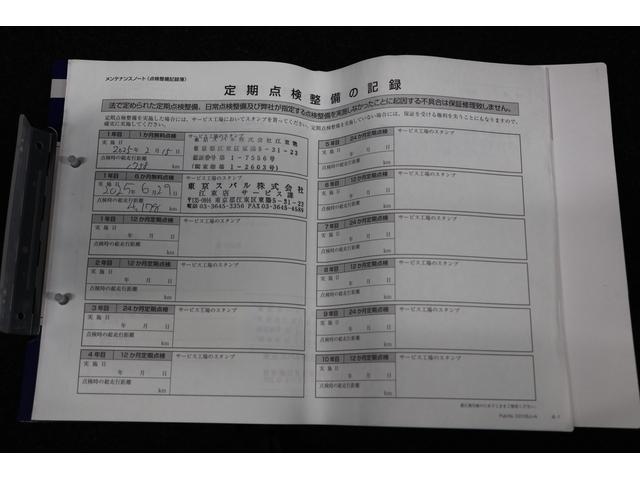 メンテナンスノート（点検整備記録簿）
定期点検整備の記録
法で定められた定期点検整備、日常点検整備及び弊社が指定する点検整備を実施しなかったことに起因する不具合は保証修理致しません。
定期点検整備を実施した場合には、サービス工場においてスタンプを貰ってください。定期点検整備を実施していない場合には、保証を受ける権利を失うことにもなりますので、
確実に実施してください。
1年目 1か月無料点検 サービス工場のスタンプ
実施日
2025年 2月 15日
点検時の総走行距離
km
東京スバル株式会社江東店
認証番号第1-7556号
(関東陸指1-2603号)
1年目 6か月無料点検 サービス工場のスタンプ
実施日
2025年 6月29日
点検時の総走行距離
km
東京スバル株式会社
江東店 サービス課
〒135-0016 東京都江東区東陽5-31-23
電話 03-3645-3356 FAX03-3645-4589
1年目 12か月定期点検 サービス工場のスタンプ
実施日
年 月 日
点検時の総走行距離
km
2年目 12か月定期点検 サービス工場のスタンプ
実施日
年 月 日
点検時の総走行距離
km
3年目 24か月定期点検 サービス工場のスタンプ
実施日
年 月 日
点検時の総走行距離
km
4年目 12か月定期点検 サービス工場のスタンプ
実施日
年 月 日
点検時の総走行距離
km
5年目 24か月定期点検 サービス工場のスタンプ
実施日
年 月 日
点検時の総走行距離
km
6年目 12か月定期点検 サービス工場のスタンプ
実施日
年 月 日
点検時の総走行距離
km
7年目 24か月定期点検 サービス工場のスタンプ
実施日
年 月 日
点検時の総走行距離
km
8年目 12か月定期点検 サービス工場のスタンプ
実施日
年 月 日
点検時の総走行距離
km
9年目 24か月定期点検 サービス工場のスタンプ
実施日
年 月 日
点検時の総走行距離
km
10年目 12か月定期点検 サービス工場のスタンプ
実施日
年 月 日
点検時の総走行距離
km